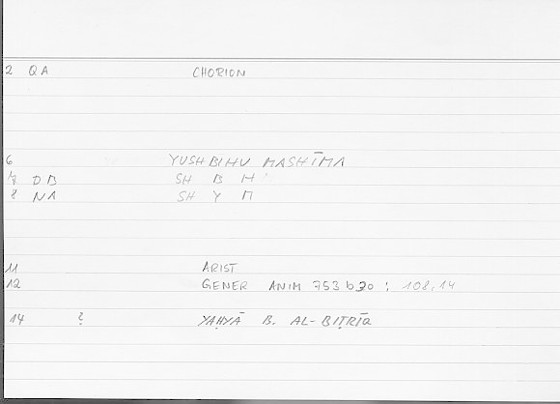 2 QA CHORION
6 YUSHBIHU MASHĪMA
7 DB SH B H
8 NA SH Y M
11 ARIST
12 GENER ANIM 753b30 : 108,14
14 ? YAḤYĀ B. AL-BIṬRĪQ